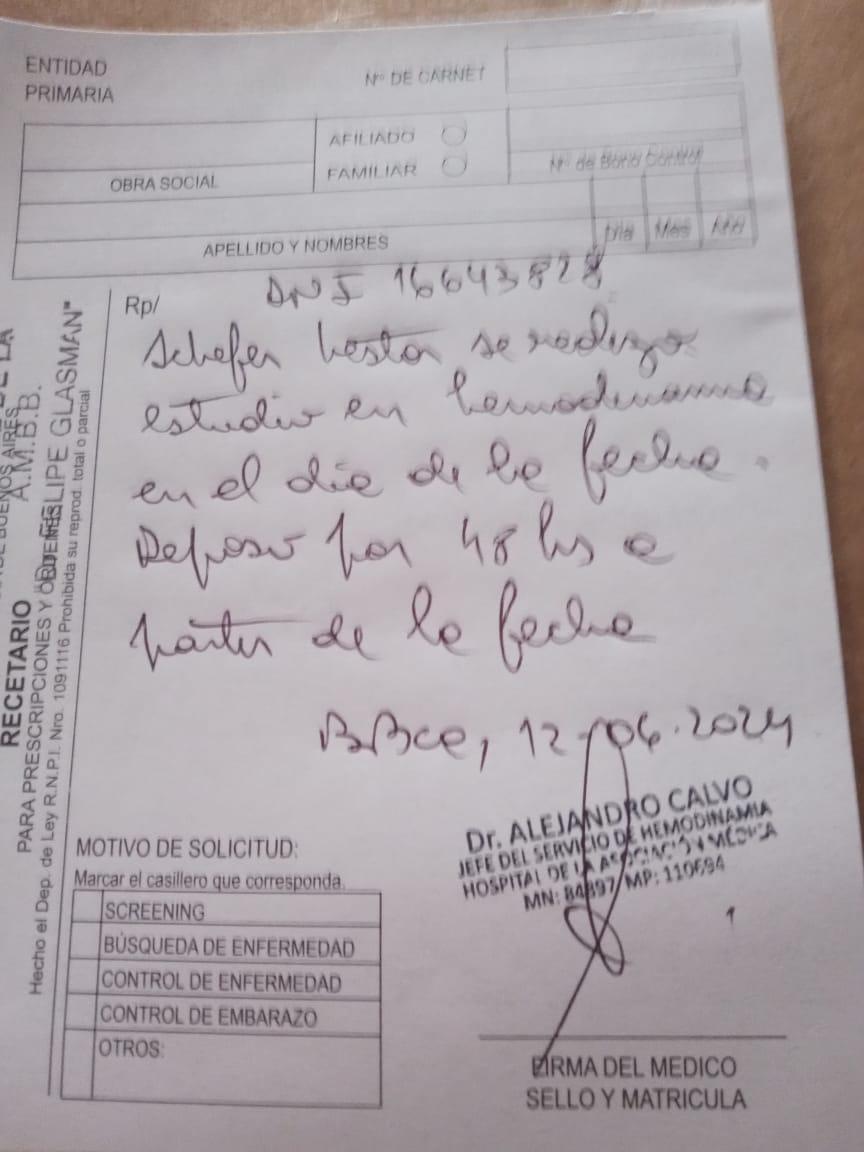 ENTIDAD
PRIMARIA
Nº DE CARNET
AFILIADO
FAMILIAR
OBRA SOCIAL
Nº de Bono Control
APELLIDO Y NOMBRES
Día Mes Año
Rp/
DNI 16643828
Schefer Nestor se realizo
estudio en hemodinamia
en el dia de la fecha.
Reposo por 48 hs a
partir de la fecha
BBca, 12-06-2024
Dr. ALEJANDRO CALVO
JEFE DEL SERVICIO DE HEMODINAMIA
HOSPITAL DE LA ASOCIACIÓN MÉDICA
MN: 84897 MP: 110694
MOTIVO DE SOLICITUD:
Marcar el casillero que corresponda.
SCREENING
BÚSQUEDA DE ENFERMEDAD
CONTROL DE ENFERMEDAD
CONTROL DE EMBARAZO
OTROS:
FIRMA DEL MEDICO
SELLO Y MATRICULA
A.M.B.B.
RECETARIO
PARA PRESCRIPCIONES Y ÓRDENES
"DR. FELIPE GLASMAN"
Hecho el Dep. de Ley R.N.P.I. Nro. 1091116 Prohibida su reprod. total o parcial